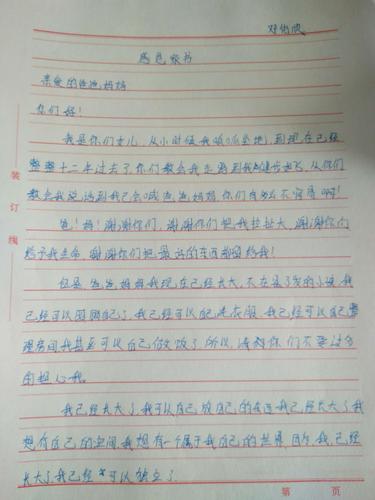 感恩家书
亲爱的爸爸妈妈
你们好！
我是你们女儿，从小时候我呱呱坠地，到现在已经
整整十二年过去了，你们教会我走路到我健步如飞，从你们
教会我说话到我已会喊爸爸妈妈，你们有多么不容易啊！
爸！妈！谢谢你们，谢谢你们把我拉扯大，谢谢你们
给予我生命，谢谢你们把最好的东西都留给我！
但是爸爸妈妈我现在已经长大，不在是3岁的小孩，我
已经可以照顾自己了，我已经可以自己洗衣服，我已经可以自己整
理房间我甚至可以自己做饭了，所以，请你们不要过分
的担心我。
我已经长大了，我可以自己放自己的东西我已经长大了我
想有自己的空间，我想有一个属于我自己的世界，因为，我已经
长大了，我已经可以独立了。
装
订
线
第 页